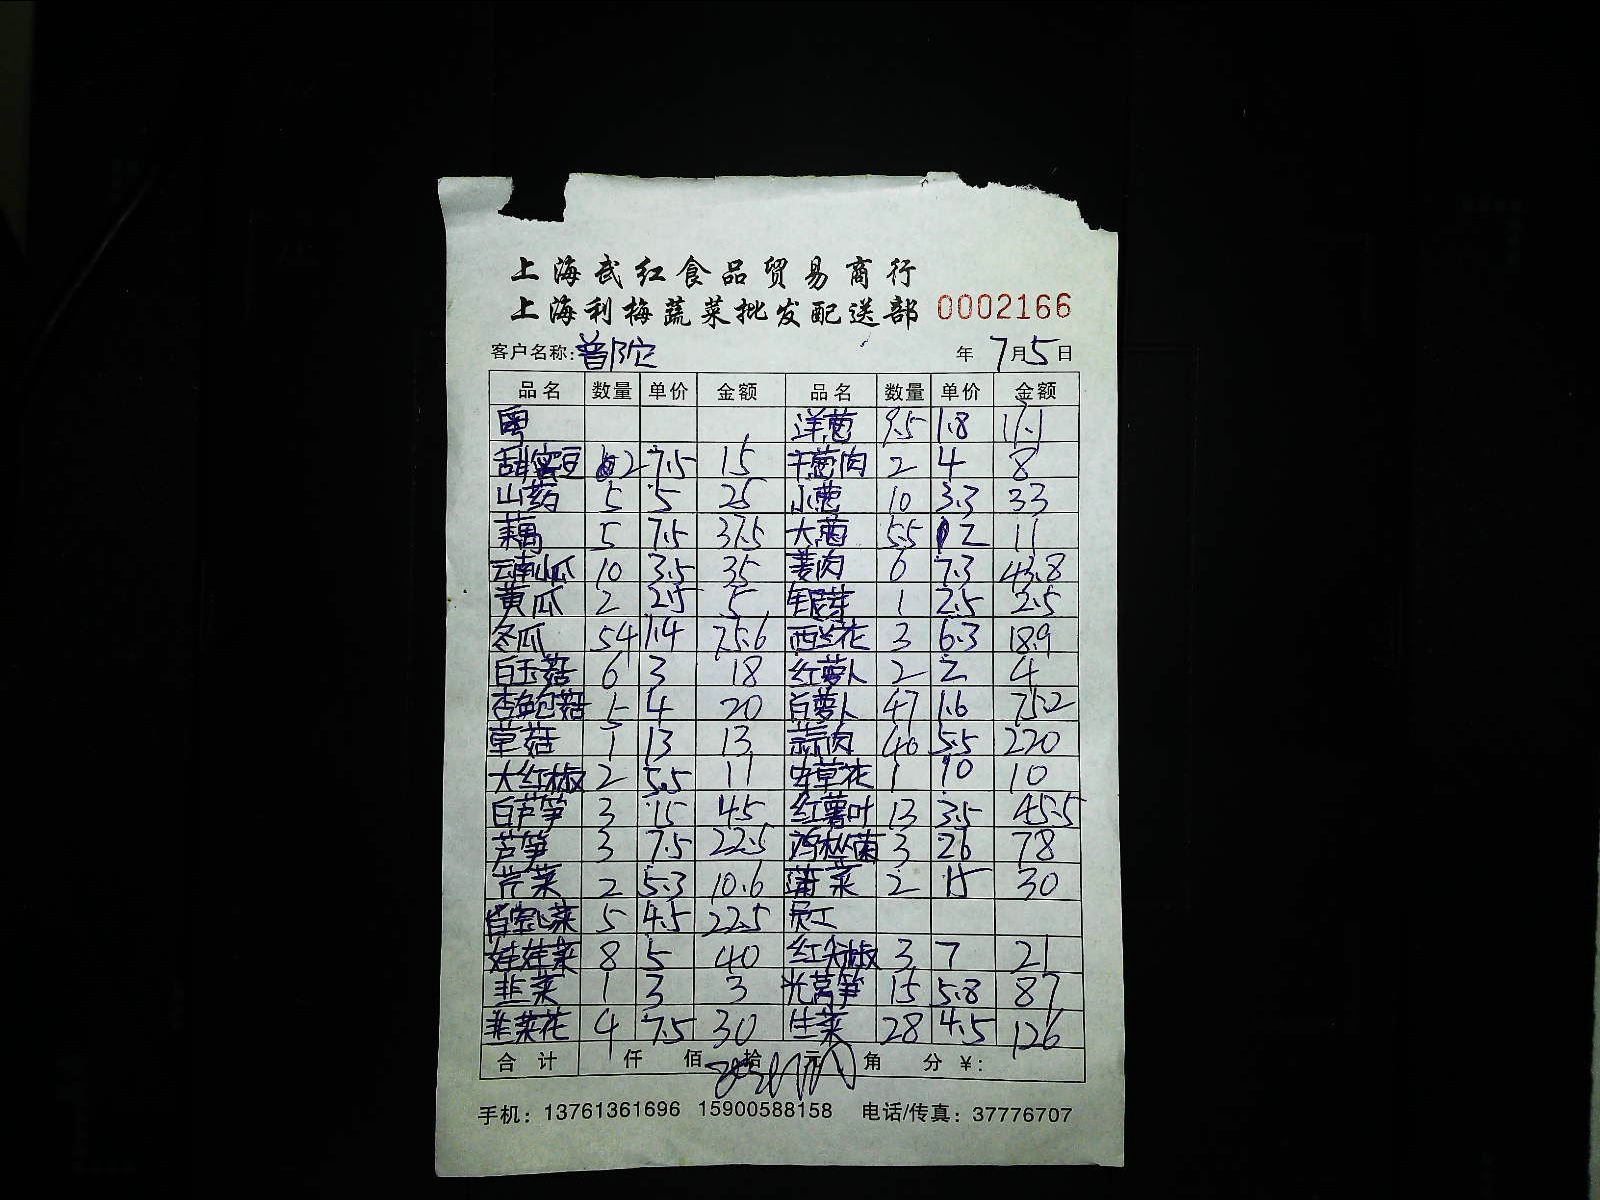 上海武红食品贸易商行
上海利梅蔬菜批发配送部 0002166
客户名称:普陀 年 7月5日
品名 数量 单价 金额 品名 数量 单价 金额
粤 洋葱 9.5 1.8 17.1
甜蜜豆 2 7.5 15 干葱肉 2 4 8
山药 5 5 25 小葱 10 3.3 33
藕 5 7.5 37.5 大葱 5.5 2 11
云南小瓜 10 3.5 35 姜肉 6 7.3 43.8
黄瓜 2 2.5 5 银芽 1 2.5 2.5
冬瓜 54 1.4 75.6 西兰花 3 6.3 18.9
白玉菇 6 3 18 红萝卜 2 2 4
杏鲍菇 5 4 20 白萝卜 47 1.6 75.2
草菇 1 13 13 蒜肉 40 5.5 220
大红椒 2 5.5 11 虫草花 1 10 10
白芦笋 3 15 45 红薯叶 13 3.5 45.5
芦笋 3 7.5 22.5 鸡枞菌 3 26 78
芹菜 2 5.3 10.6 蒲菜 2 15 30
菜 5 4.5 22.5 员工
娃娃菜 8 5 40 红尖椒 3 7 21
韭菜 1 3 3 光莴笋 15 5.8 87
韭菜花 4 7.5 30 生菜 28 4.5 126
合计 仟 佰 拾 元 角 分 ¥:
手机: 13761361696 15900588158 电话/传真: 37776707